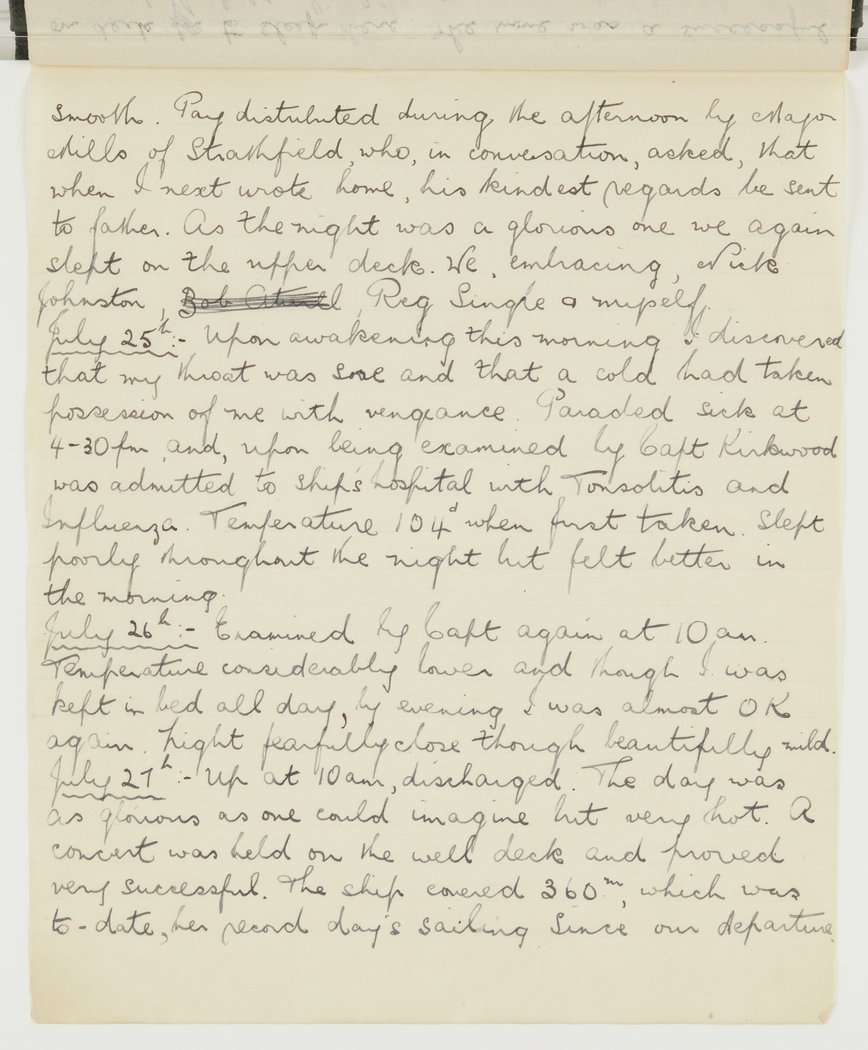 smooth. Pay distributed during the afternoon by Major
Mills of Strathfield, who, in conversation, asked, that
when I next wrote home, his kindest regards be sent
to father. As the night was a glorious one we again
slept on the upper deck. We, embracing, Nick
Johnston, Reg Single & myself.
July 25th:- Upon awakening this morning I discovered
that my throat was sore and that a cold had taken
possession of me with vengeance. Paraded sick at
4-30pm and, upon being examined by Capt Kirkwood
was admitted to ship's hospital with Tonsolitis and
Influenza. Temperature 104d when first taken. Slept
poorly throughout the night but felt better in
the morning.
July 26th:- Examined by Capt again at 10am.
Temperature considerably lower and though I was
kept in bed all day, by evening I was almost OK
again. Night fearfully close though beautifully mild.
July 27th:- Up at 10am, discharged. The day was
as glorious as one could imagine but very hot. A
concert was held on the well deck and proved
very successful. The ship covered 360m, which was
to-date, her record day's sailing since our departure.